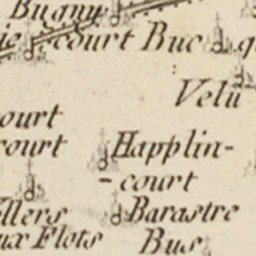 Bugny
ie court Buc q
Velu
ourt
court Happlin-
-court
llers Barastre
ux Flots Bus